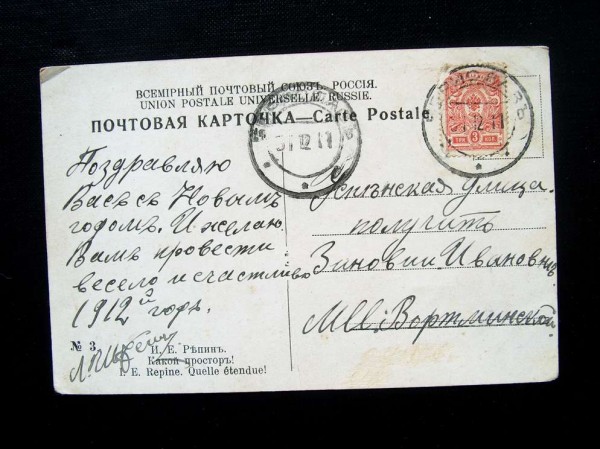 ВСЕМІРНЫЙ ПОЧТОВЫЙ СОЮЗЪ. РОССІЯ.
UNION POSTALE UNIVERSELLE. RUSSIE.
ПОЧТОВАЯ КАРТОЧКА—Carte Postale
31 12 11
31 12 11
3
Поздравляю
Васъ съ Новымъ
годомъ. И желаю
Вамъ провести
весело и счастливо
1912 й годъ.
улица.
получить
Зиновіи Ивановнѣ
№ 3.
И. Е. Рѣпинъ.
Какой просторъ!
I. E. Repine. Quelle étendue!